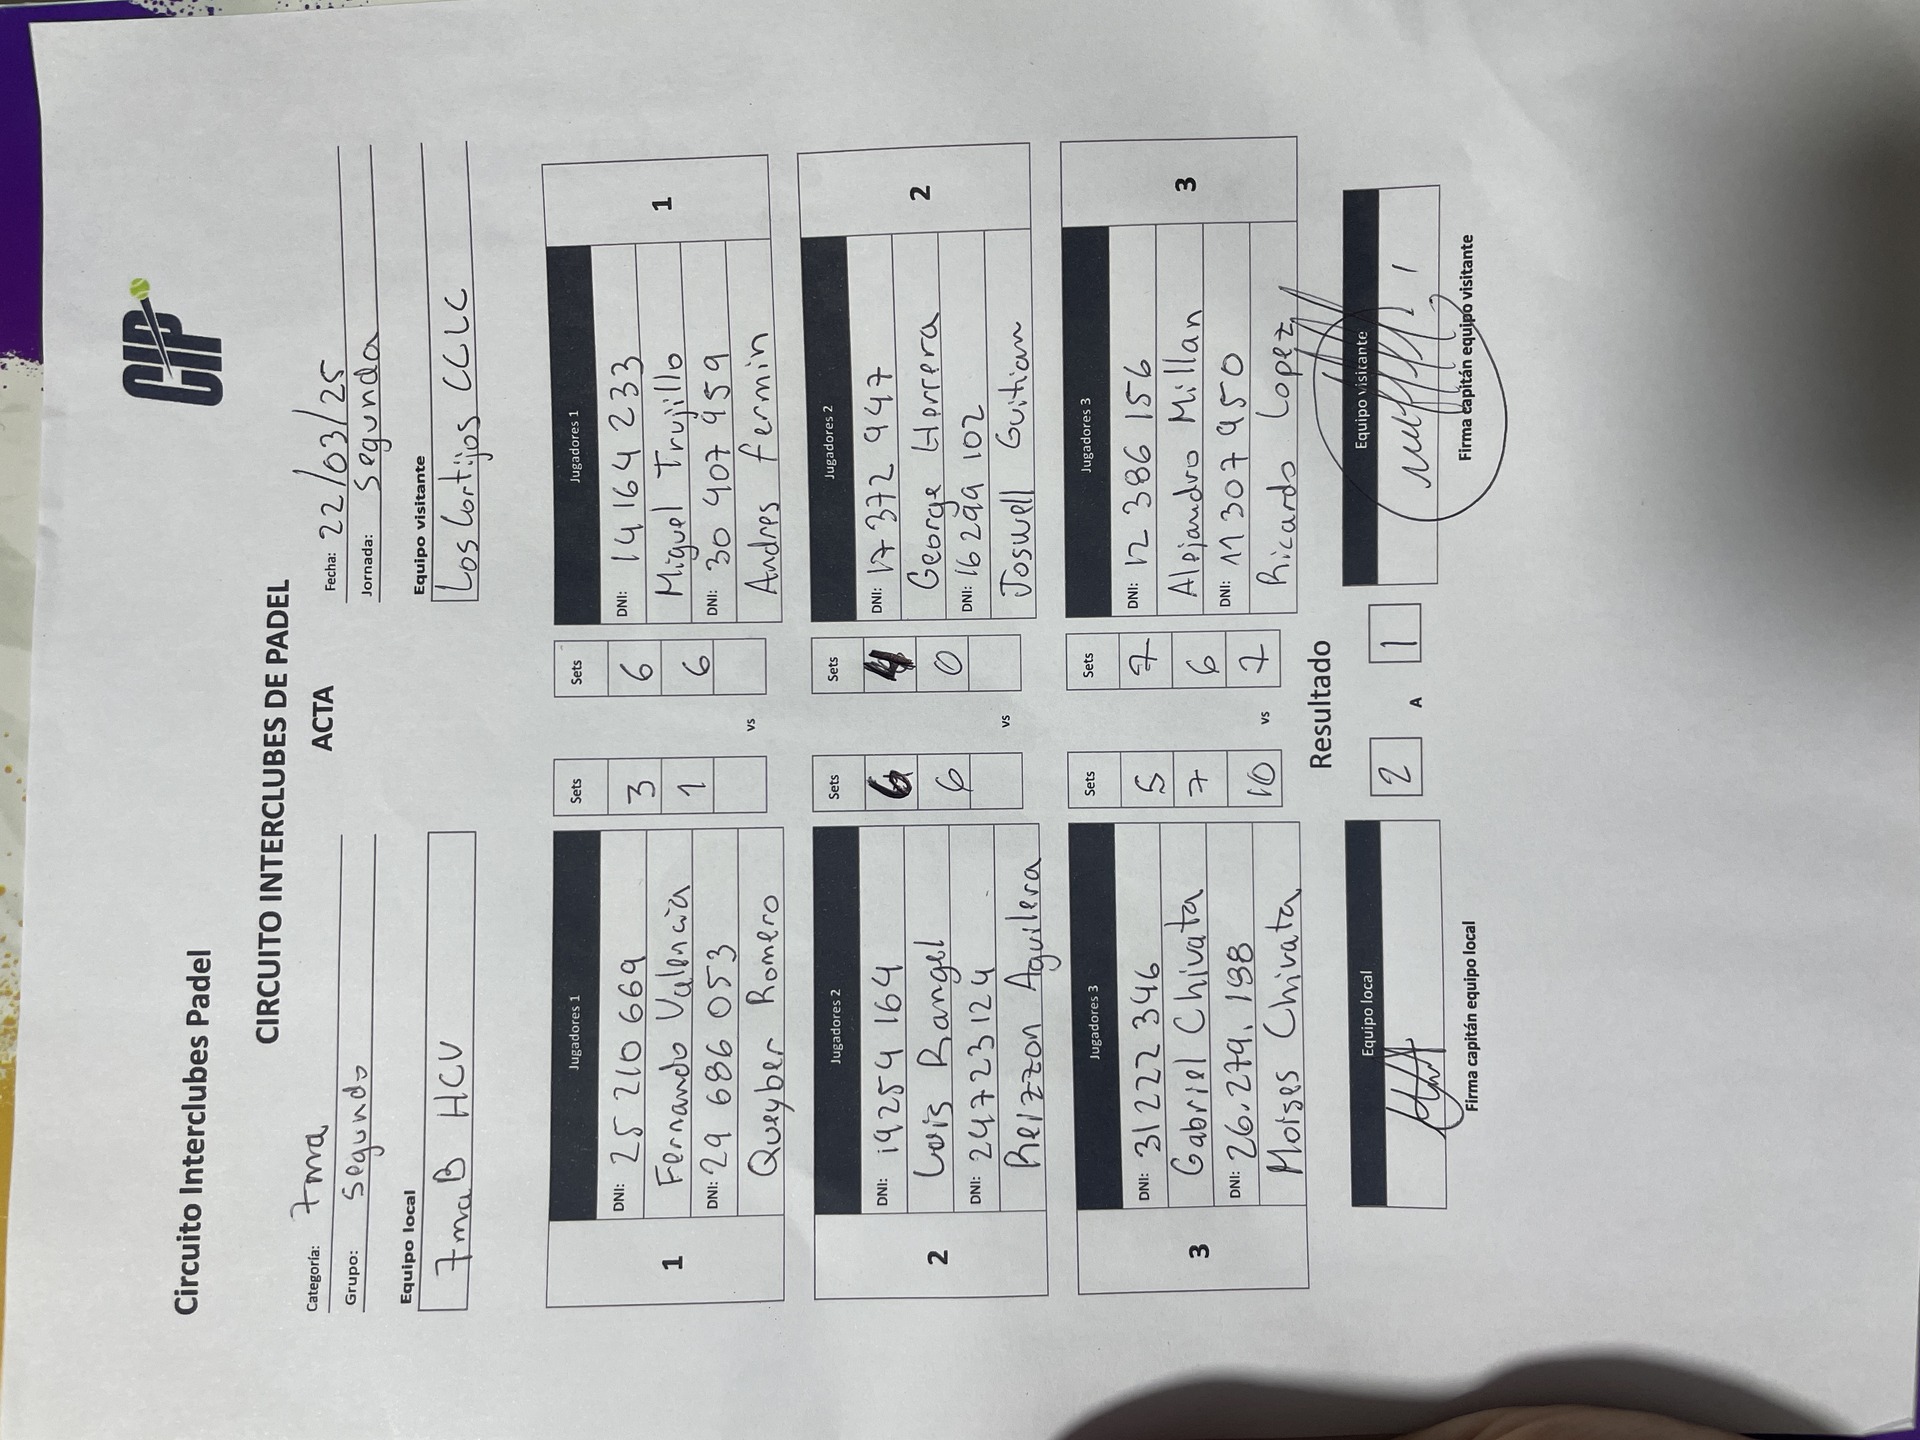 CIP
Circuito Interclubes Padel
CIRCUITO INTERCLUBES DE PADEL
ACTA
Categoría: 7ma
Fecha: 22/03/25
Grupo: Segundo
Jornada: Segunda
Equipo local
Equipo visitante
7ma B HCV
Los Cortijos CCLC
Jugadores 1 Sets Sets Jugadores 1
DNI: 25 210 669 3 6 DNI: 14 164 233
Fernando Valencia 1 6 Miguel Trujillo
1 DNI: 29 686 053 DNI: 30 407 959 1
Queyber Romero vs Andres Fermin
Jugadores 2 Sets Sets Jugadores 2
DNI: 19254 164 6 4 DNI: 17 372 947
Luis Rangel 6 0 George Herrera
2 DNI: 24723124 DNI: 16 299 102 2
Reizzon Aguilera vs Joswell Guitian
Jugadores 3 Sets Sets Jugadores 3
DNI: 31 222 346 5 7 DNI: 12 386 156
Gabriel Chivata 7 6 Alejandro Millan
3 DNI: 26.279.198 10 7 DNI: 11 307 950 3
Moises Chivata vs Ricardo Lopez
Resultado
Equipo local 2 A 1 Equipo visitante
Firma capitán equipo local Firma capitán equipo visitante